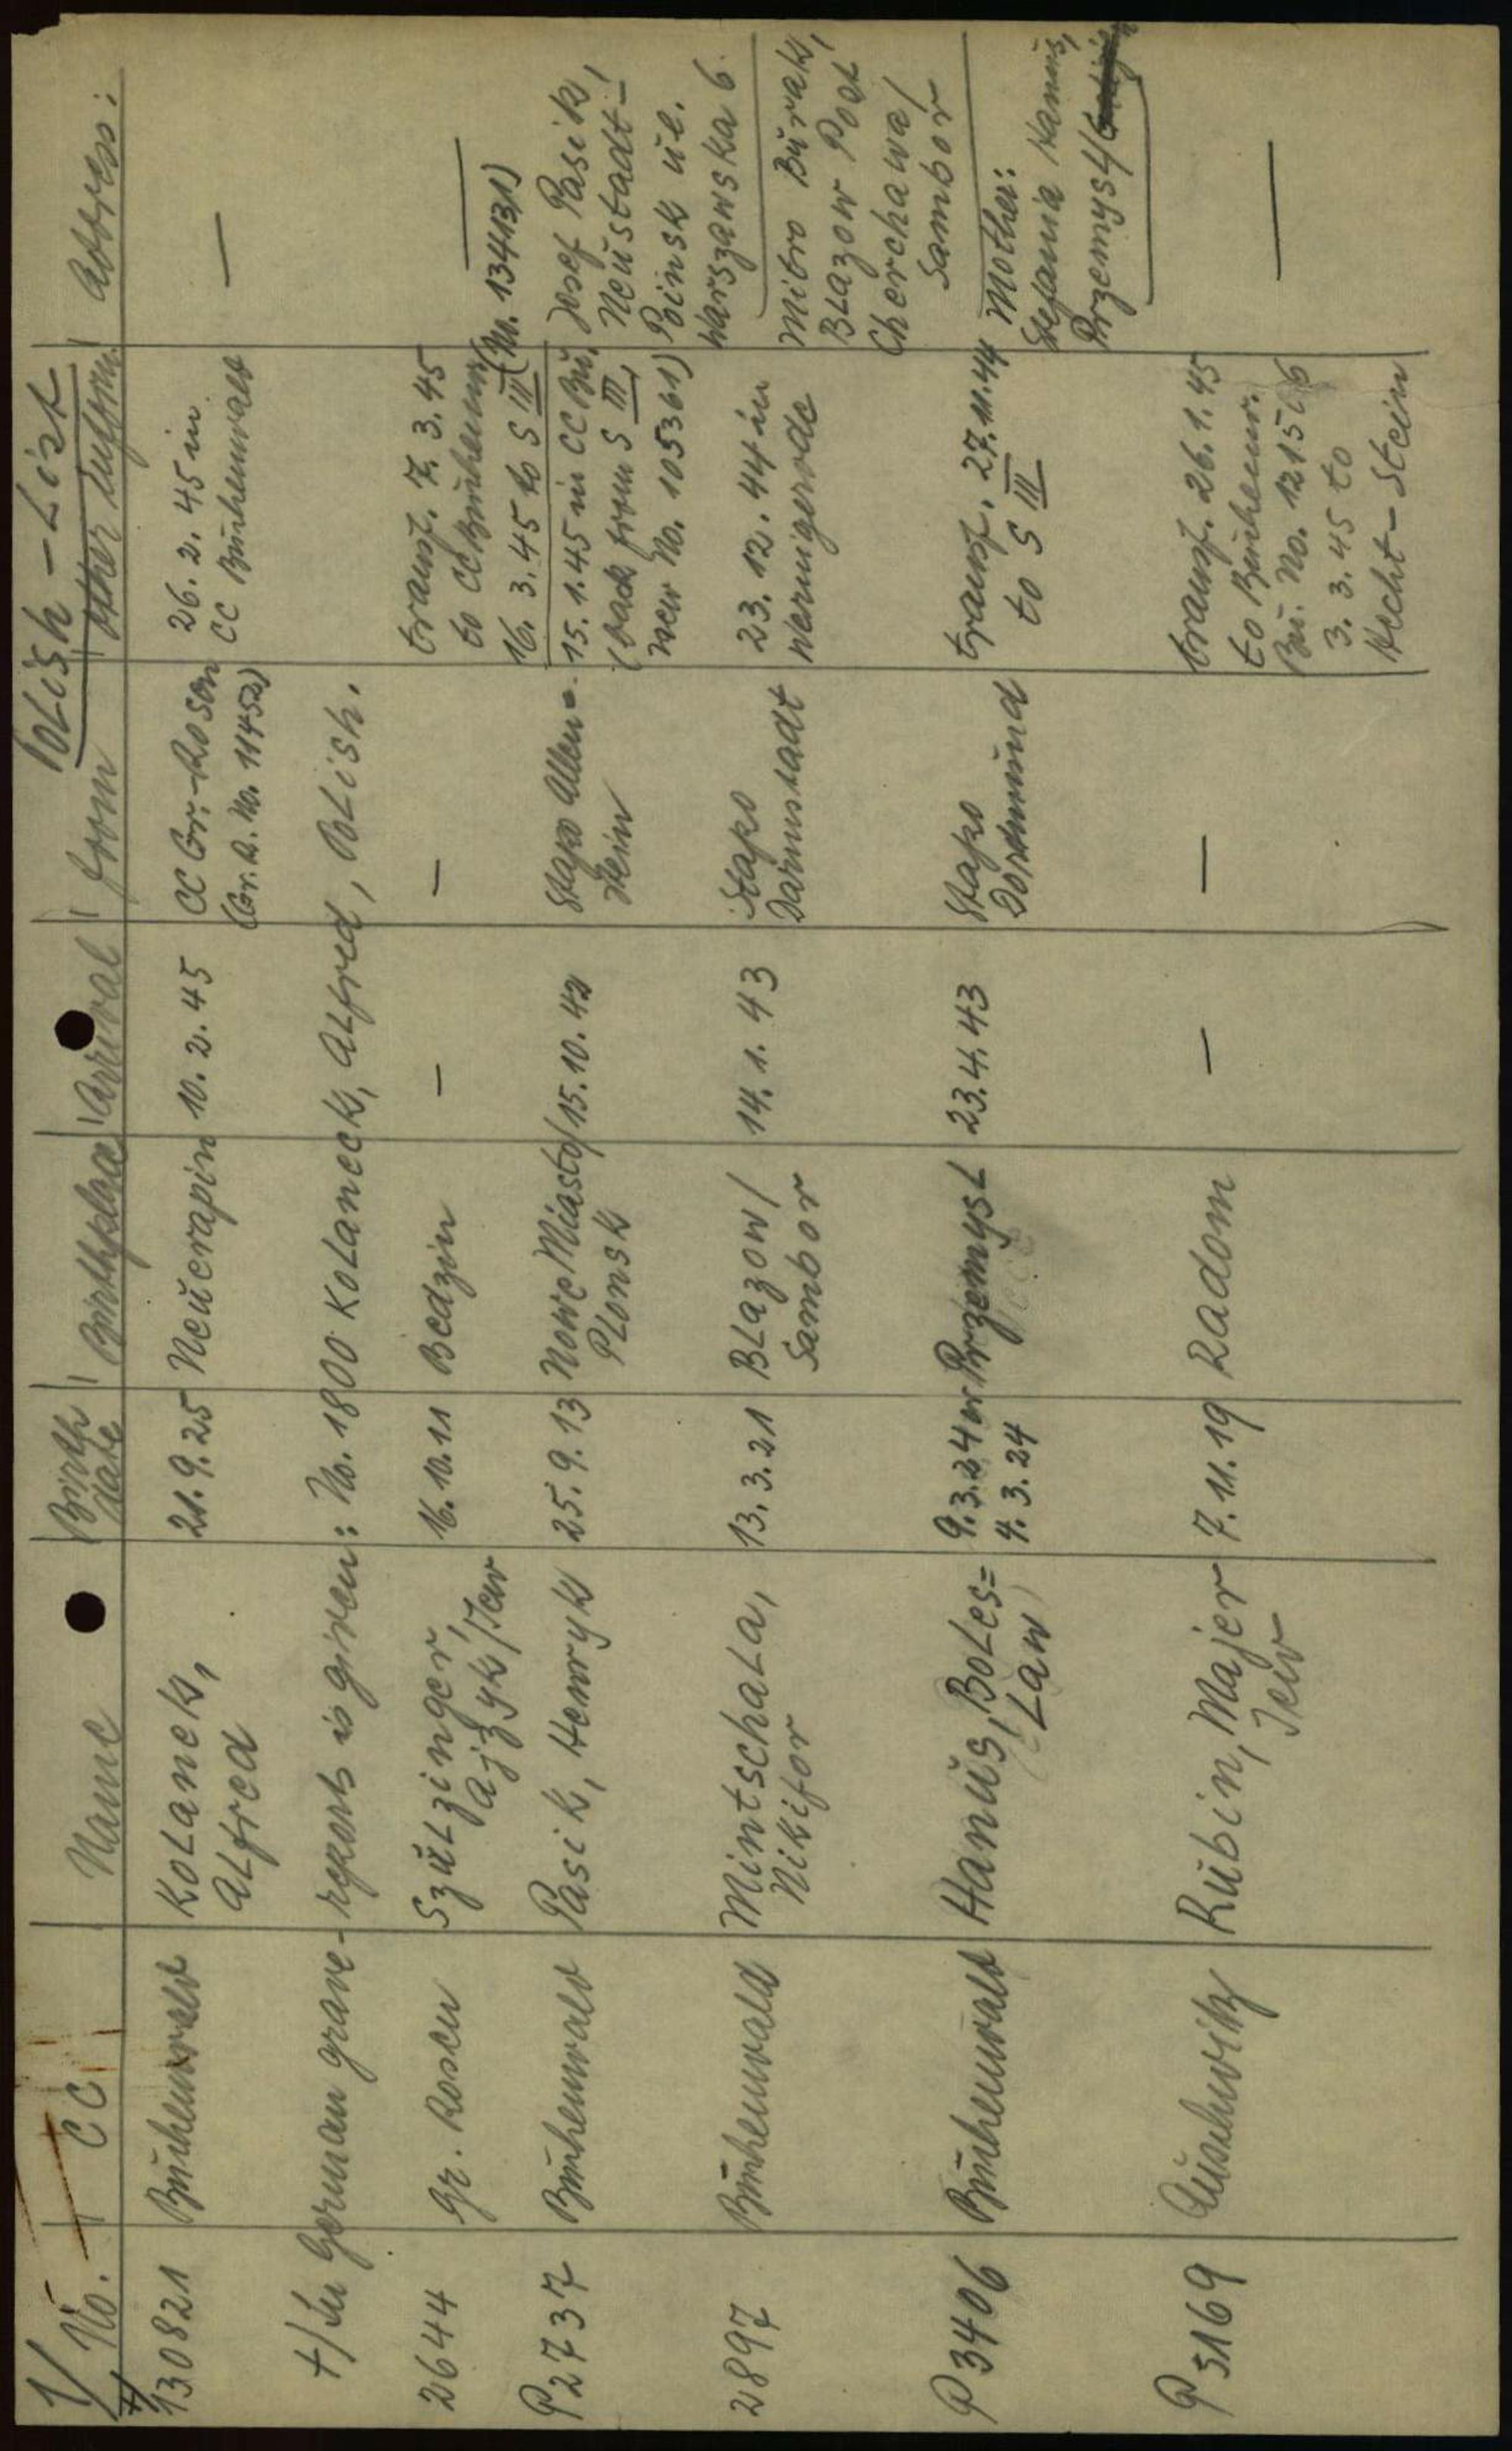 1/
Polish - List
No. CC Name Birth date Birthplace Arrival from other inform. Address:
+/
130821 Buchenwald Kolanek, Alfred 21.9.25 Neucrapin 10.2.45 CC Gr.-Rosen (Gr.R. No. 11452) 26.2.45 in CC Buchenwald —
+/ In German grave-reports is given: No. 1800 Kolaneck, Alfred, Polish.
2644 Gr. Rosen Szulzinger, Ajzyk/Jew 16.10.11 Bedzin — — transf. 7.3.45 to CC Buchenw. 16.3.45 to S III (No. 134131) —
P 2737 Buchenwald Pasik, Henryk 25.9.13 Nowe Miasto/ Plonsk 15.10.42 Stapo Allenstein 15.1.45 in CC Bu. (back from S III, new No. 105361) Josef Pasik, Neustadt- Poinsk ul. Warszawska 6.
2897 Buchenwald Mintschala, Nikifor 13.3.21 Blazow/ Sambor 14.1.43 Stapo Darmstadt 23.12.44 in Wernigerode Mitro Burak, Blazow Post Cherchawa/ Sambor
P 3406 Buchenwald Hanus, Boles= law 9.3.24 or 4.3.24 Przemysl 23.4.43 Stapo Dortmund transf. 27.11.44 to S III Mother: Stefania Hanus, Przemysl/
P 5169 Auschwitz Rubin, Majer Jew 7.11.19 Radom — — transf. 26.1.45 to Buchenw. Bu. No. 121506 3.3.45 to Hecht-Stein —